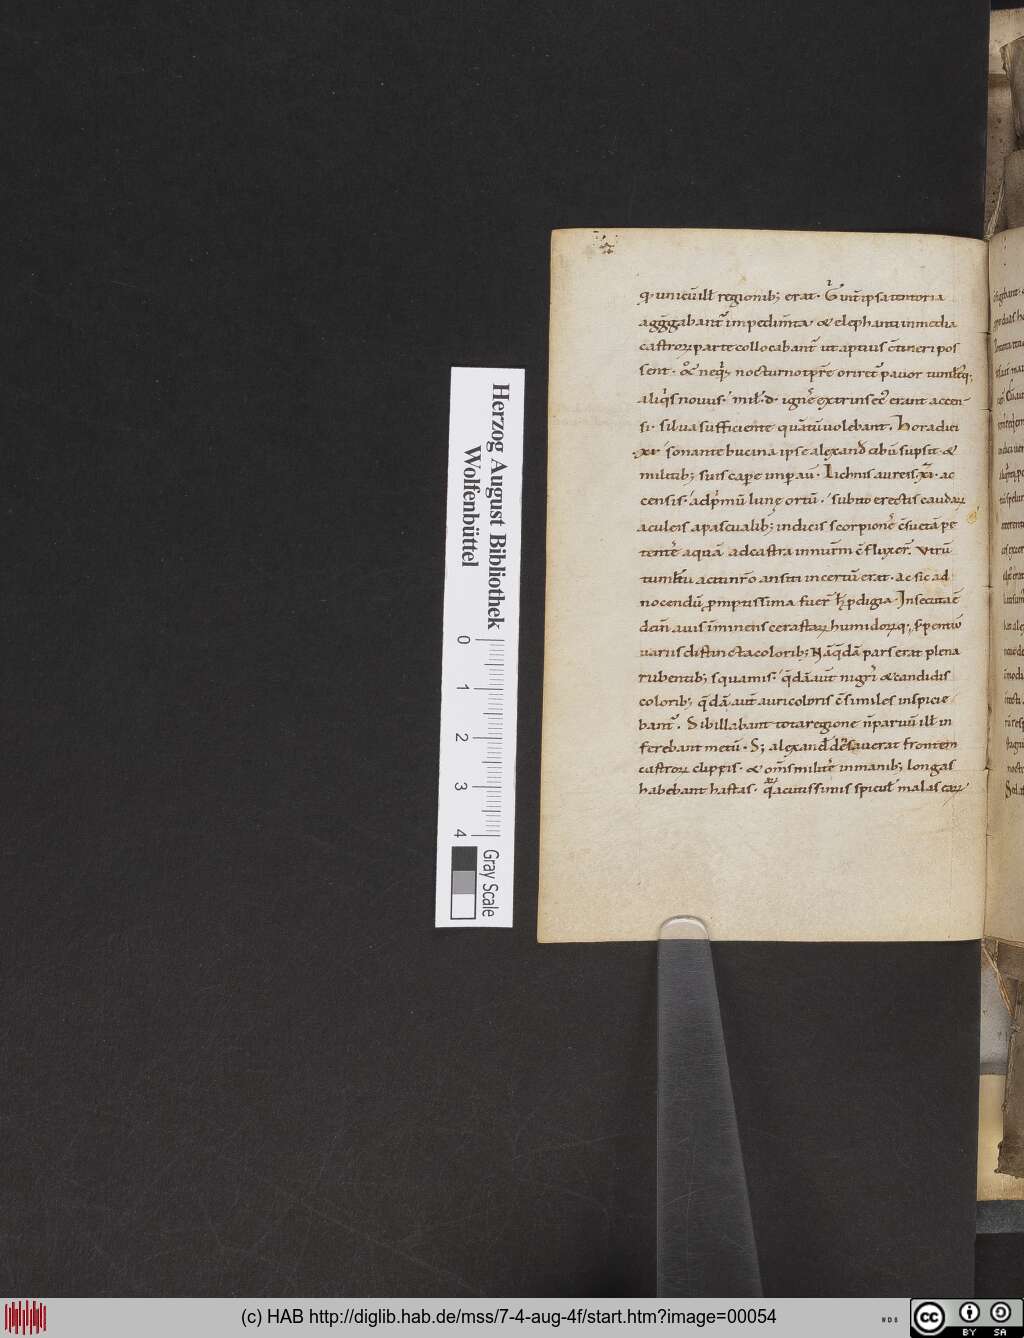 q· unicuill regionib; erat· Tunt ipsa tentoria
aggregabant impedimta· & elephanti in media
castrorum parte collocabant ut aptius contineri pos
sent· & neq; nocturno tpre oriret pavor tumultusq;
aliqs novus· mil· d· igne extrinsec erant accen
si· silva sufficiente quātū volebant. Hora diei
·xi· sonante bucina ipse alexand cibū supsit· &
militib; suis cape impavit· Lichnis aureis· xii· ac
censis· ad prmū lune ortū· subito erectis caudarum
aculeis a pascualib; indicis scorpione csuetā pe
tente aquā ad castra innum cfluxer. utrū
tumltu acti nro an siti incertū erat· ac sic ad
nocendū promptissima fuer hec pdigia· Insecuta ē
dein avis imminens cerastarum humidorumq; serpentiū
variis distincta colorib; Nā qdā pars erat plena
rubentib; squamis· qdā aut nigri & candidis
colorib; qdā aut auri coloris csimiles inspicie
bant. Sibillabant tota regione n parvū ill in
ferebant metū· S; alexand densaverat frontem
castrorum clippeis· & oms milite in manib; longas
habebant hastas· quarum acutissimis spicul malas earum
Herzog August Bibliothek
Wolfenbüttel
0 1 2 3 4
Gray Scale
(c) HAB http://diglib.hab.de/mss/7-4-aug-4f/start.htm?image=00054
cc BY SA